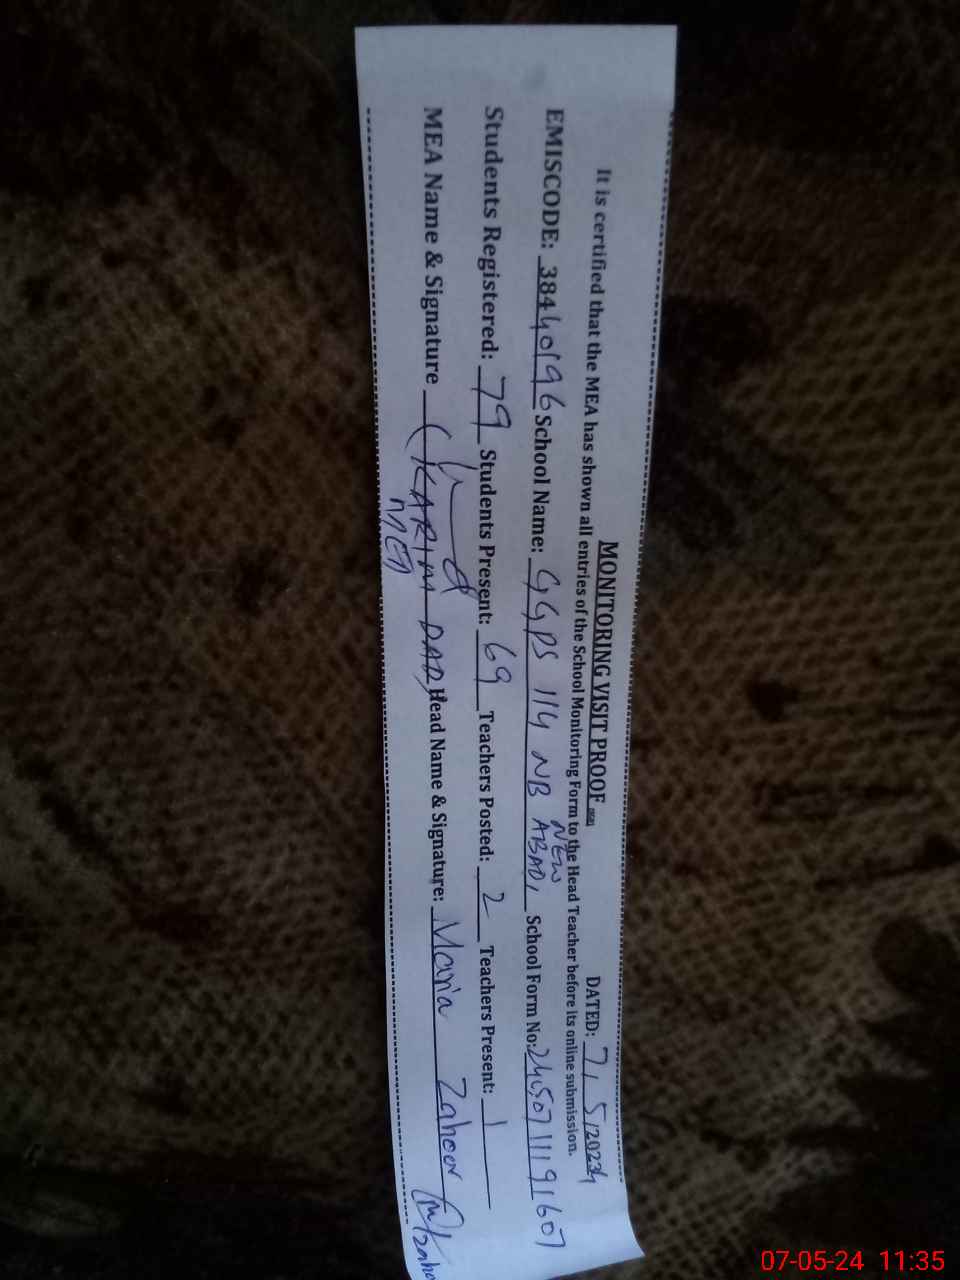 MONITORING VISIT PROOF DATED: 7/5/2024
It is certified that the MEA has shown all entries of the School Monitoring Form to the Head Teacher before its online submission.
EMISCODE: 38440196 School Name: GGPS 114 NB NEW ABADI, School Form No: 24050711191607
Students Registered: 79 Students Present: 69 Teachers Posted: 2 Teachers Present: 1
MEA Name & Signature (KARIM DAD) Head Name & Signature: Maria Zahoor
MEA
07-05-24 11:35